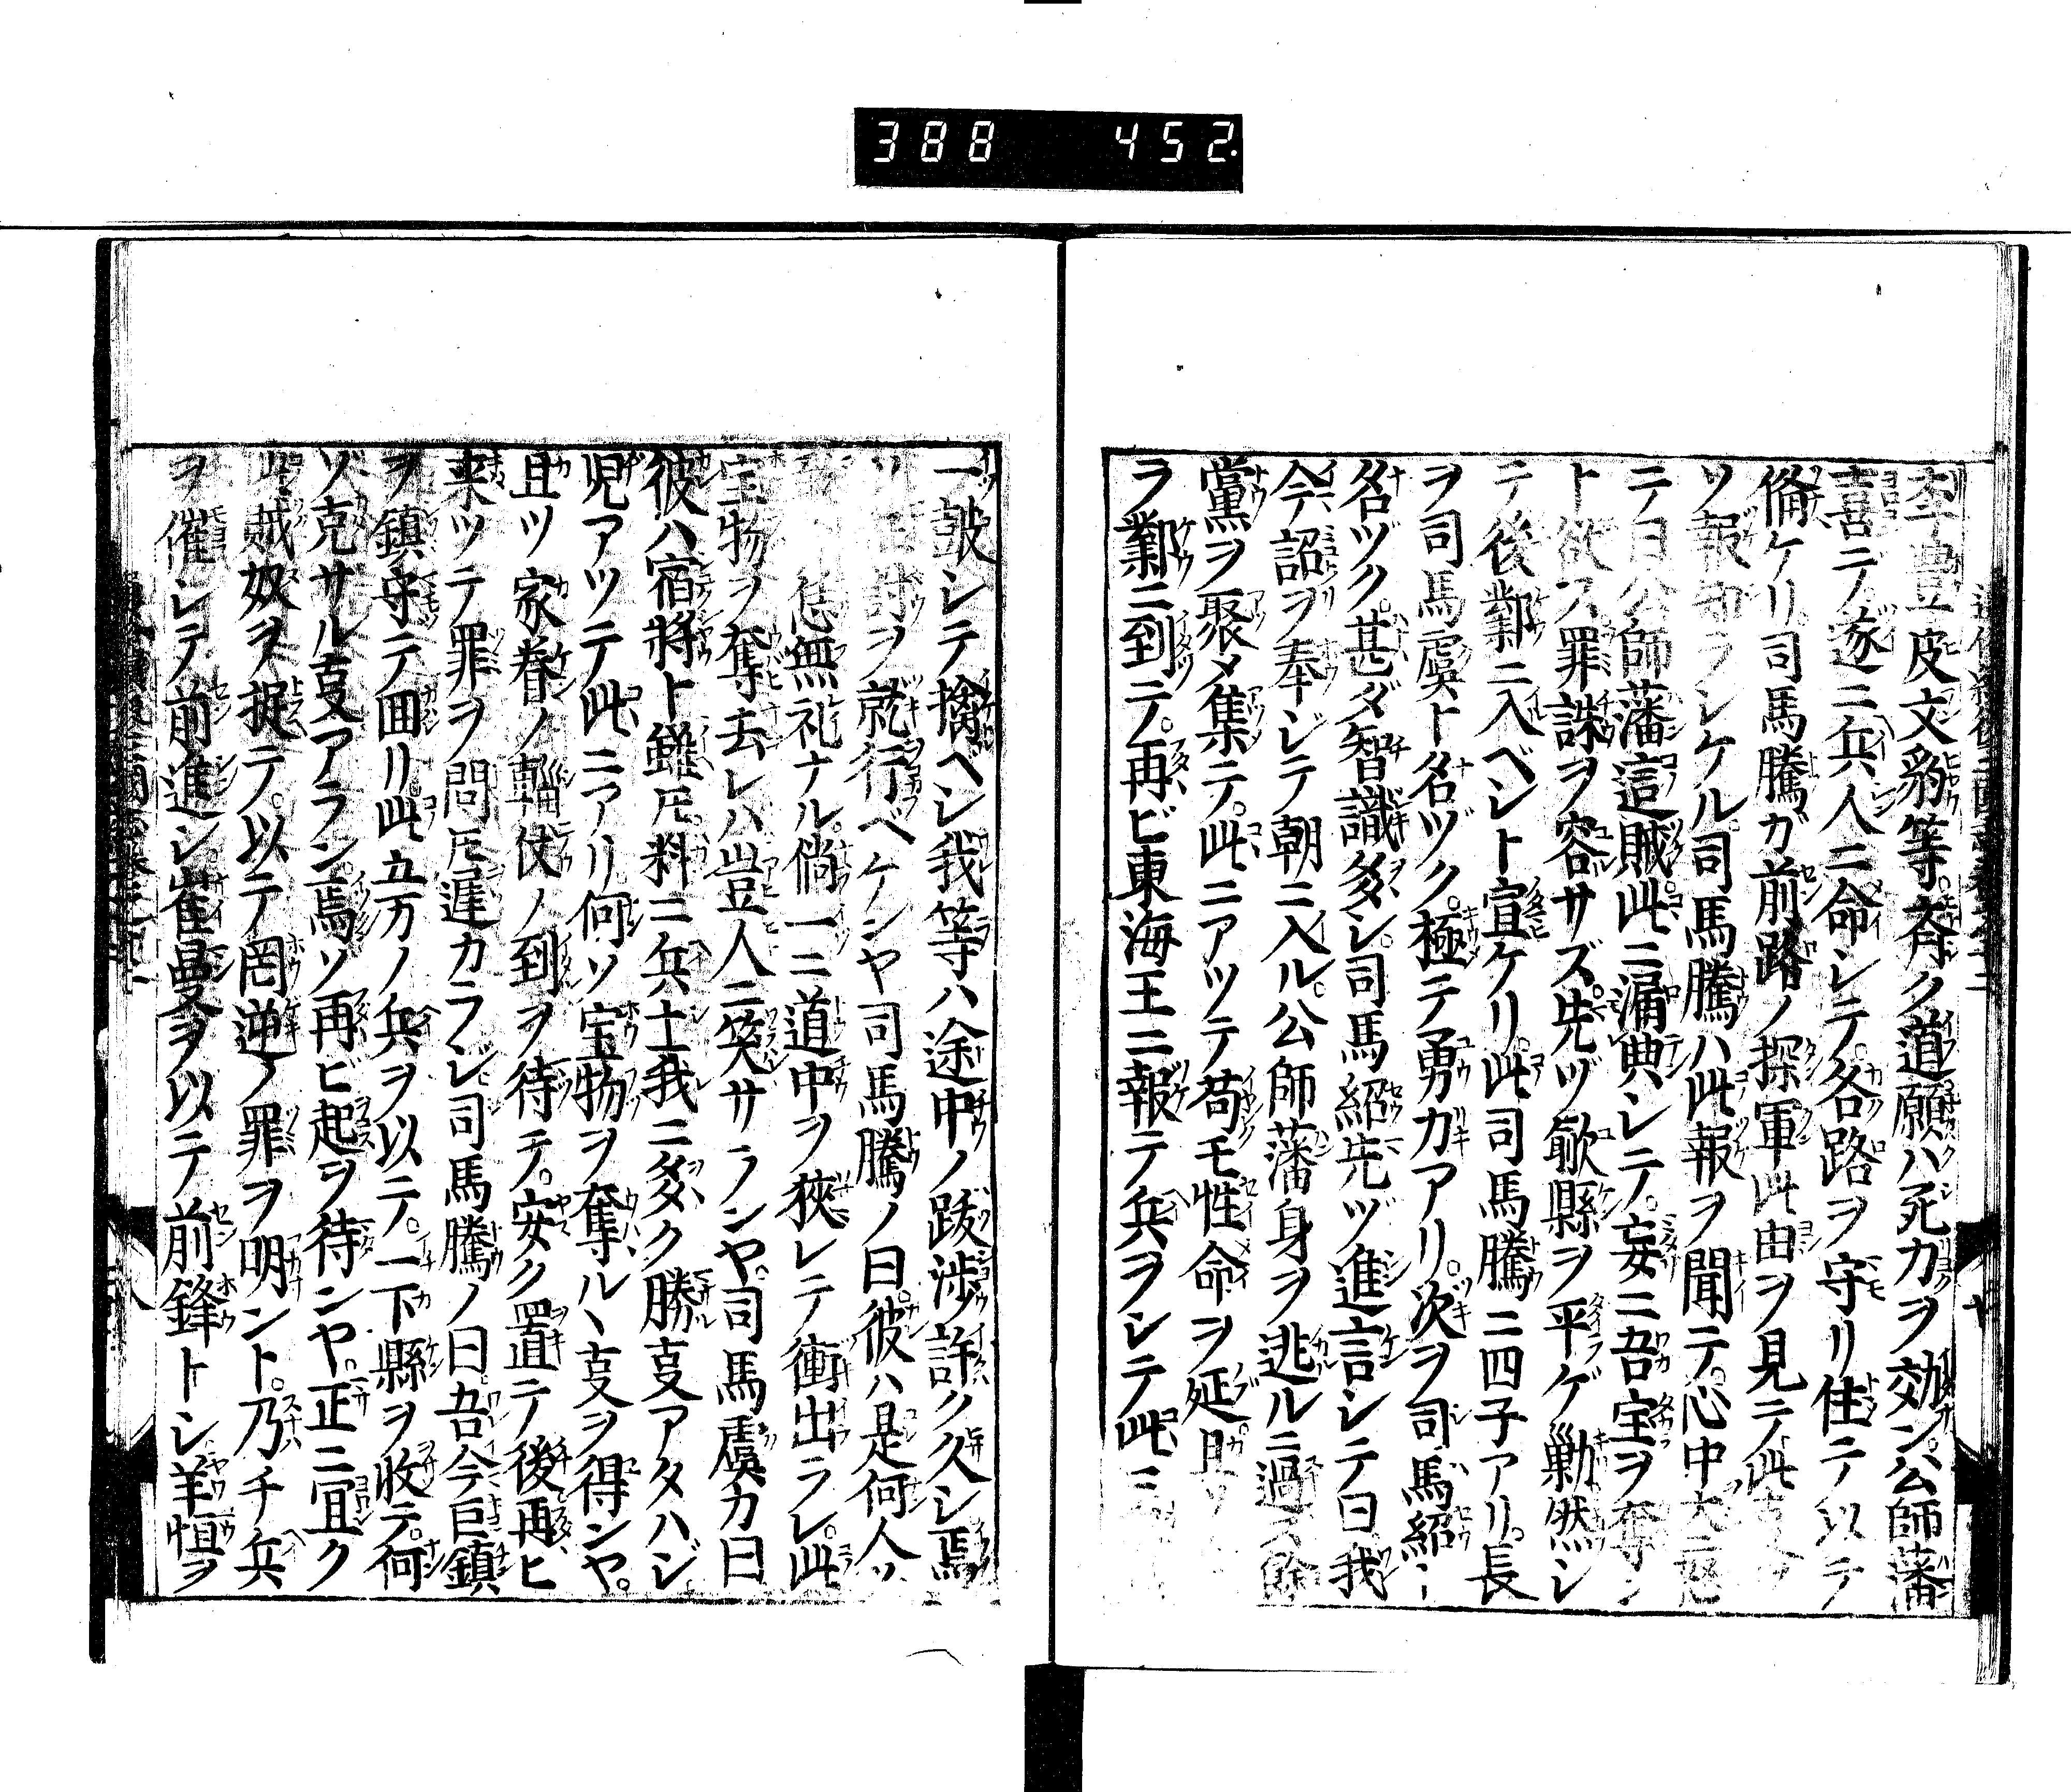 388 452
李豊皮文豹等。斉ク道願ハ死力ヲ効ン。公師藩
喜テ。遂ニ兵人ニ命レテ。各路ヲ守リ住テ以テ
備ケリ。司馬騰カ前路ノ探軍此由ヲ見テ。此
ソ報知ラレケル。司馬騰ハ此報ヲ聞テ。心中大
テ曰公師藩這賊此ニ漏典レテ。妄ニ吾宝ヲ奪ン
ト欲ス罪誅ヲ容サズ。先ヅ歙縣ヲ平ゲ勦然シ
テ後鄴ニ入ベシト宣ケリ。此司馬騰ニ四子アリ。長
ヲ司馬虞ト名ヅク。極テ勇力アリ。次ヲ司馬紹ト
名ヅク。甚ダ智識多シ。司馬紹先ヅ進言シテ曰我
今詔ヲ奉ジテ朝ニ入ル。公師藩身ヲ逃ルニ過ス。餘
黨ヲ聚メ集テ。此ニアツテ苟モ性命ヲ延
ラ鄴ニ到テ。再ビ東海王ニ報テ兵ヲシテ此ニ
一皷シテ擒ベシ我等ハ途中ノ跋渉許ク久シ焉
討ヲ就行ベケンヤ司馬騰ノ曰。彼ハ是何人ソ
恁無礼ナル。倘一ニ道中ヲ狹レテ衝出ラレ。此
宝物ヲ奪去レハ豈人ニ笑サランヤ。司馬虞カ曰
彼ハ宿將ト雖𪜈。料ニ兵士我ニ多ク勝㕝アタハジ
児アツテ此ニアリ。何ソ宝物ヲ奪ル丶㕝ヲ得ンヤ。
且ツ家眷ノ輜伏ノ到ヲ待テ。安ク置テ後再ヒ
来ツテ罪ヲ問𪜈遅カラジ。司馬騰ノ曰。吾今巨鎮
ヲ鎮守テ囬リ。此五万ノ兵ヲ以テ。一下縣ヲ收テ。何
ゾ克サル㕝アラン。焉ソ再ビ起ヲ待ンヤ。正ニ宜ク
此賊奴ヲ捉テ。以テ罔逆ノ罪ヲ明ント。乃チ兵
ヲ催レテ前進シ崔曼ヲ以テ前鋒トシ羊恒ヲ